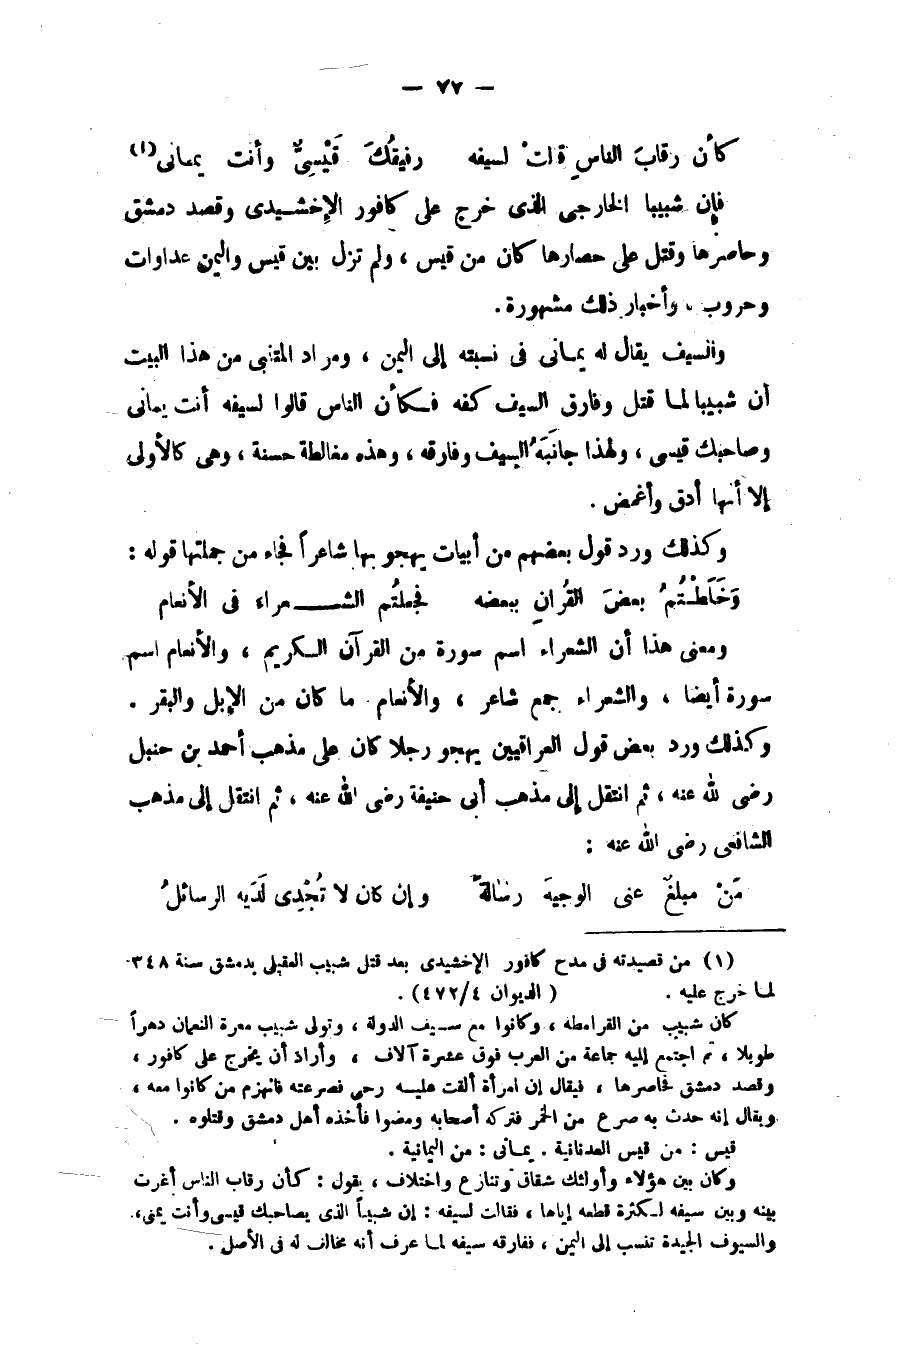 — ٧٧ —
كأن رقابَ الناسِ قالتْ لسيفه رفيقُكَ قَيْسِىٌّ وأنت يمانى(١)
فإن شبيبا الخارجى الذى خرج على كافور الإخشيدى وقصد دمشق
وحاصرها وقتل على حصارها كان من قيس ، ولم تزل بين قيس واليمن عداوات
وحروب ، وأخبار ذلك مشهورة .
والسيف يقال له يمانى فى نسبته إلى اليمن ، ومراد المتنبى من هذا البيت
أن شبيبا لما قتل وفارق السيف كفه فكأن الناس قالوا لسيفه أنت يمانى
وصاحبك قيسى ، ولهذا جانَبَهُ السيف وفارقه ، وهذه مغالطة حسنة ، وهى كالأولى
إلا أنها أدق وأغمض .
وكذلك ورد قول بعضهم من أبيات يهجو بها شاعراً فجاء من جملتها قوله :
وَخَلَطْتُمُ بعضَ القُرانِ ببعضه فجعلتُم الشعراء فى الأنعام
ومعنى هذا أن الشعراء اسم سورة من القرآن الكريم ، والأنعام اسم
سورة أيضا ، والشعراء جمع شاعر ، والأنعام ما كان من الإبل والبقر .
وكذلك ورد بعض قول العراقيين يهجو رجلا كان على مذهب أحمد بن حنبل
رضى لله عنه ، ثم انتقل إلى مذهب أبى حنيفة رضى الله عنه ، ثم انتقل إلى مذهب
الشافعى رضى الله عنه :
مَنْ مبلغٌ عنى الوجيهَ رسالةً وإن كان لا تُجْدِى لَدَيه الرسائلُ
(١) من قصيدته فى مدح كافور الإخشيدى بعد قتل شبيب العقيلى بدمشق سنة ٣٤٨
لما خرج عليه . ( الديوان ٤/٤٧٢) .
كان شبيب من القرامطة ، وكانوا مع سيف الدولة ، وتولى شبيب معرة النعمان دهراً
طويلا ، ثم اجتمع إليه جماعة من العرب فوق عشرة آلاف ، وأراد أن يخرج على كافور ،
وقصد دمشق فحاصرها ، فيقال إن امرأة ألقت عليه رحى فصرعته فانهزم من كانوا معه ،
ويقال إنه حدث به صرع من الخمر فتركه أصحابه ومضوا فأخذه أهل دمشق وقتلوه .
قيس : من قيس العدنانية . يمانى : من اليمانية .
وكان بين هؤلاء وأولئك شقاق وتنازع واختلاف ، يقول : كأن رقاب الناس أغرت
بينه وبين سيفه لكثرة قطعه إياها ، فقالت لسيفه : إن شبيباً الذى يصاحبك قيسى وأنت يمنى ،
والسيوف الجيدة تنسب إلى اليمن ، ففارقه سيفه لما عرف أنه مخالف له فى الأصل .